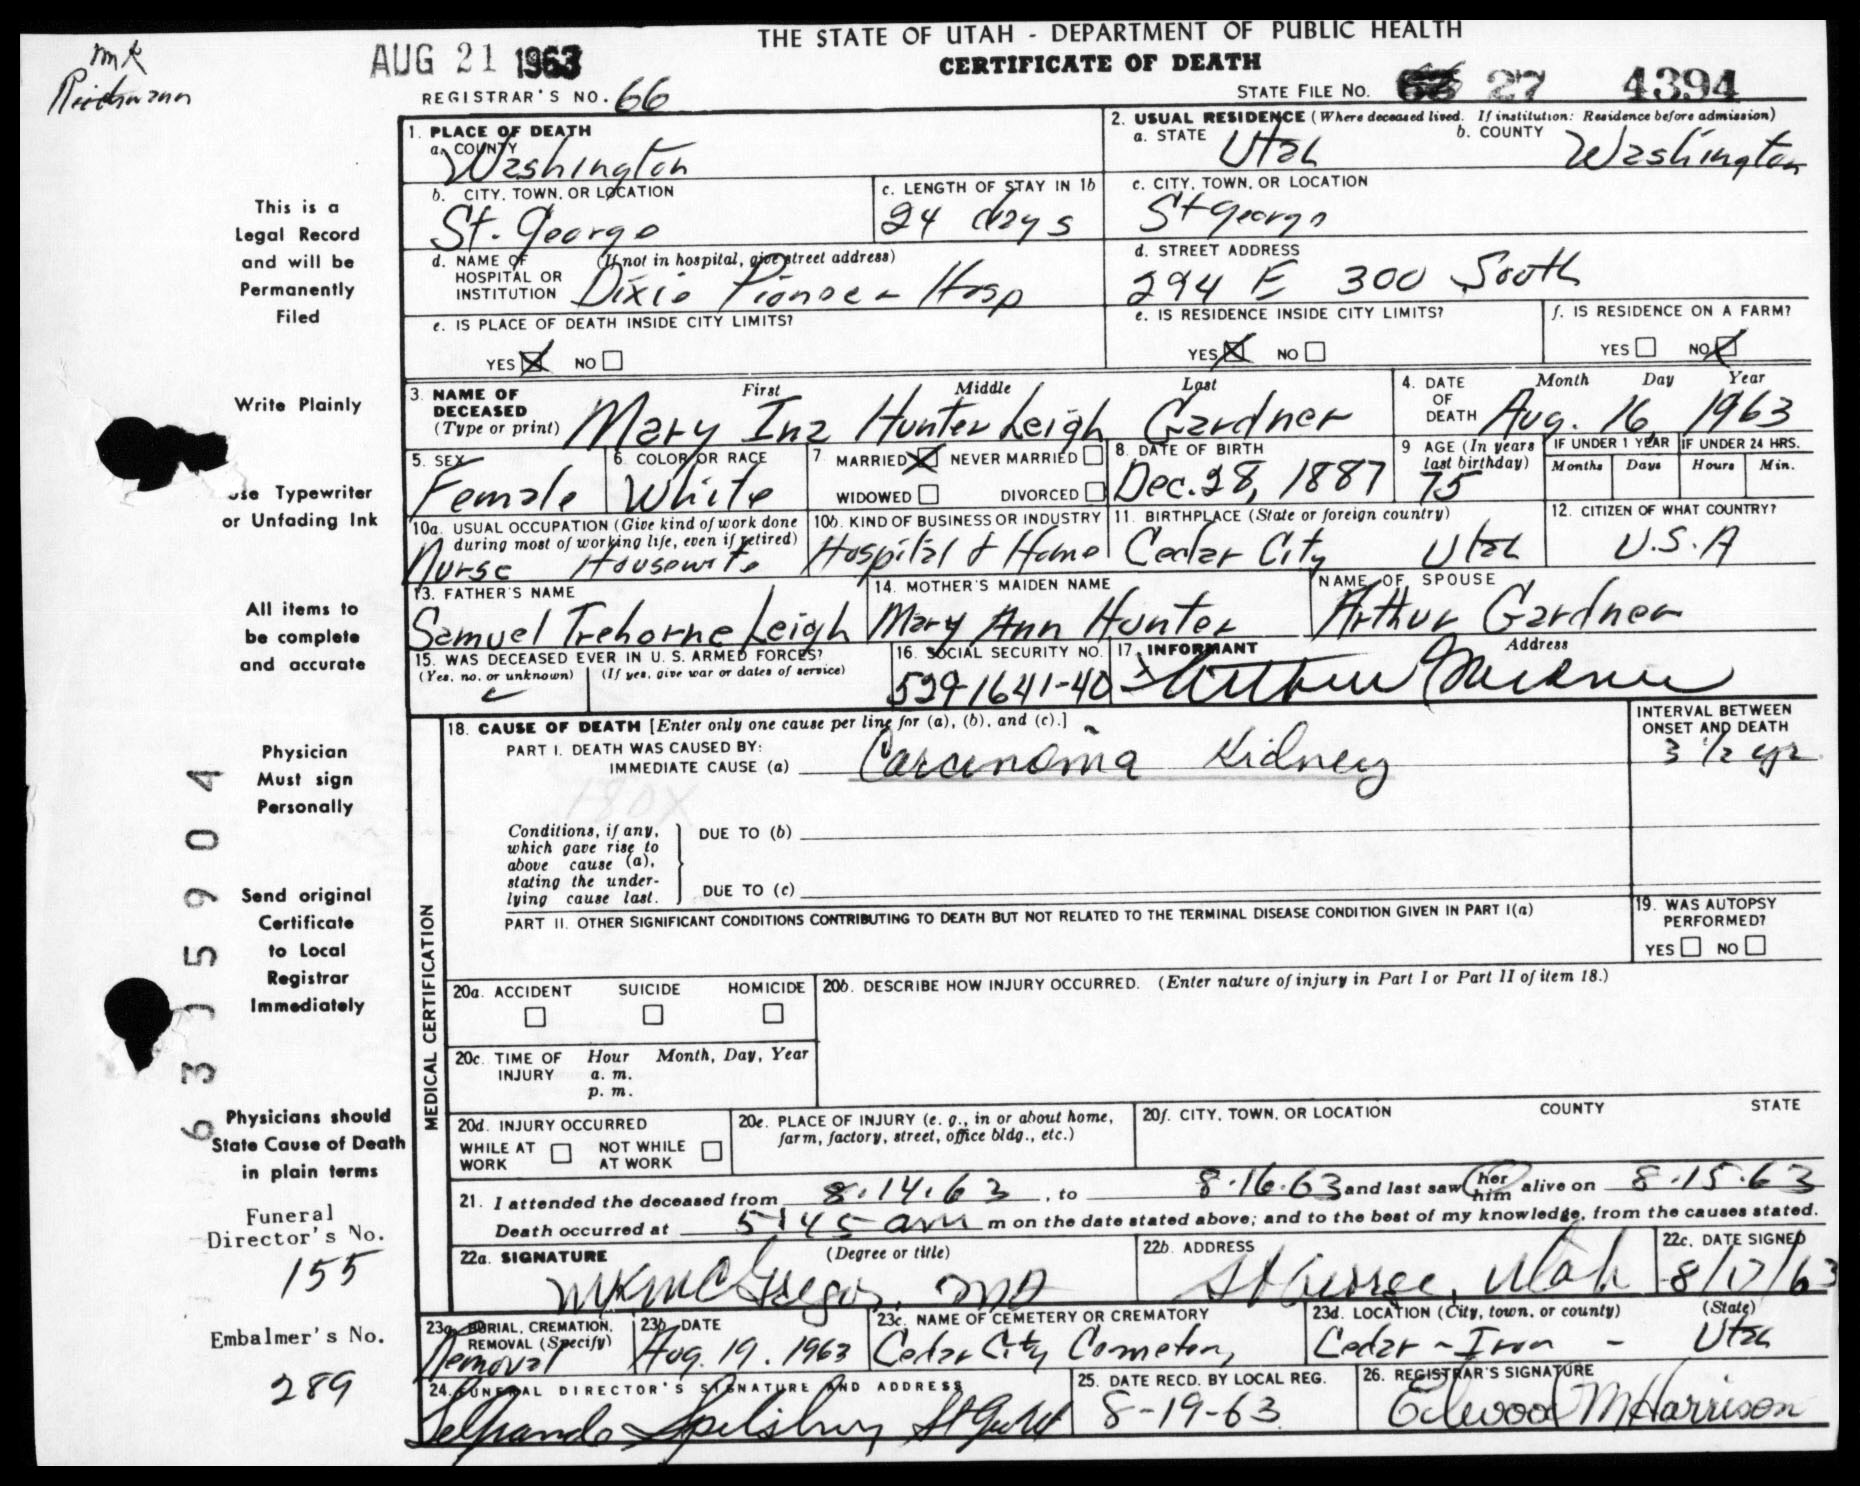 mk
AUG 21 1963
THE STATE OF UTAH - DEPARTMENT OF PUBLIC HEALTH
CERTIFICATE OF DEATH
REGISTRAR'S NO. 66
STATE FILE NO. 27 4394
This is a
Legal Record
and will be
Permanently
Filed
Write Plainly
Use Typewriter
or Unfading Ink
All items to
be complete
and accurate
Physician
Must sign
Personally
Send original
Certificate
to Local
Registrar
Immediately
Physicians should
State Cause of Death
in plain terms
Funeral
Director's No.
155
Embalmer's No.
289
1. PLACE OF DEATH
a. COUNTY
Washington
2. USUAL RESIDENCE (Where deceased lived. If institution: Residence before admission)
a. STATE Utah b. COUNTY Washington
b. CITY, TOWN, OR LOCATION
St. George
c. LENGTH OF STAY IN 1b
24 days
c. CITY, TOWN, OR LOCATION
St George
d. NAME OF (If not in hospital, give street address)
HOSPITAL OR
INSTITUTION Dixie Pioneer Hosp
d. STREET ADDRESS
294 E 300 South
e. IS PLACE OF DEATH INSIDE CITY LIMITS?
YES NO
e. IS RESIDENCE INSIDE CITY LIMITS?
YES NO
f. IS RESIDENCE ON A FARM?
YES NO
3. NAME OF DECEASED (Type or print) First Middle Last
Mary Ina Hunter Leigh Gardner
4. DATE OF DEATH Month Day Year
Aug. 16, 1963
5. SEX
Female
6. COLOR OR RACE
White
7. MARRIED NEVER MARRIED
WIDOWED DIVORCED
8. DATE OF BIRTH
Dec. 28, 1887
9 AGE (In years last birthday)
75
IF UNDER 1 YEAR
Months Days
IF UNDER 24 HRS.
Hours Min.
10a. USUAL OCCUPATION (Give kind of work done
during most of working life, even if retired)
Nurse Housewife
10b. KIND OF BUSINESS OR INDUSTRY
Hospital & Home
11. BIRTHPLACE (State or foreign country)
Cedar City Utah
12. CITIZEN OF WHAT COUNTRY?
U.S.A
13. FATHER'S NAME
Samuel Trehorne Leigh
14. MOTHER'S MAIDEN NAME
Mary Ann Hunter
NAME OF SPOUSE
Arthur Gardner
15. WAS DECEASED EVER IN U. S. ARMED FORCES?
(Yes, no, or unknown) (If yes, give war or dates of service)
16. SOCIAL SECURITY NO.
529-1641-40
17. INFORMANT Address
Arthur Gardner
MEDICAL CERTIFICATION
18. CAUSE OF DEATH [Enter only one cause per line for (a), (b), and (c).]
INTERVAL BETWEEN
ONSET AND DEATH
PART I. DEATH WAS CAUSED BY:
IMMEDIATE CAUSE (a) Carcinoma Kidney 3 1/2 yr
180X
Conditions, if any,
which gave rise to
above cause (a),
stating the under-
lying cause last.
DUE TO (b)
DUE TO (c)
PART II. OTHER SIGNIFICANT CONDITIONS CONTRIBUTING TO DEATH BUT NOT RELATED TO THE TERMINAL DISEASE CONDITION GIVEN IN PART I(a)
19. WAS AUTOPSY
PERFORMED?
YES NO
20a. ACCIDENT SUICIDE HOMICIDE
20b. DESCRIBE HOW INJURY OCCURRED. (Enter nature of injury in Part I or Part II of item 18.)
20c. TIME OF INJURY Hour Month, Day, Year
a. m.
p. m.
20d. INJURY OCCURRED
WHILE AT WORK NOT WHILE AT WORK
20e. PLACE OF INJURY (e. g., in or about home,
farm, factory, street, office bldg., etc.)
20f. CITY, TOWN, OR LOCATION COUNTY STATE
21. I attended the deceased from 8.14.63, to 8.16.63 and last saw her him alive on 8.15.63
Death occurred at 5:45 am m on the date stated above; and to the best of my knowledge, from the causes stated.
22a. SIGNATURE (Degree or title)
McGregor, MD
22b. ADDRESS
St George, Utah
22c. DATE SIGNED
8/17/63
23a. BURIAL, CREMATION,
REMOVAL (Specify)
Removal
23b. DATE
Aug. 19. 1963
23c. NAME OF CEMETERY OR CREMATORY
Cedar City Cemetery
23d. LOCATION (City, town, or county) (State)
Cedar - Iron - Utah
24. FUNERAL DIRECTOR'S SIGNATURE AND ADDRESS
Spilsbury
25. DATE RECD. BY LOCAL REG.
8-19-63
26. REGISTRAR'S SIGNATURE
Elwood M Harrison